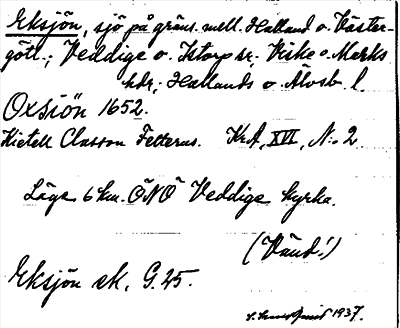 Eksjön, sjö på gräns. mell. Halland o. Väster-
götl.; Veddige o. Istorp sr. Viske o. Marks
hdr; Hallands o Älvsb. l.
Oxsiön 1652.
Kietell Classon Felterus. KrA, XVI, N:o 2
Läge 6 km. ÖNÖ Veddige kyrka.
(Vänd!)
Eksjön ek. G. 25.
1937.